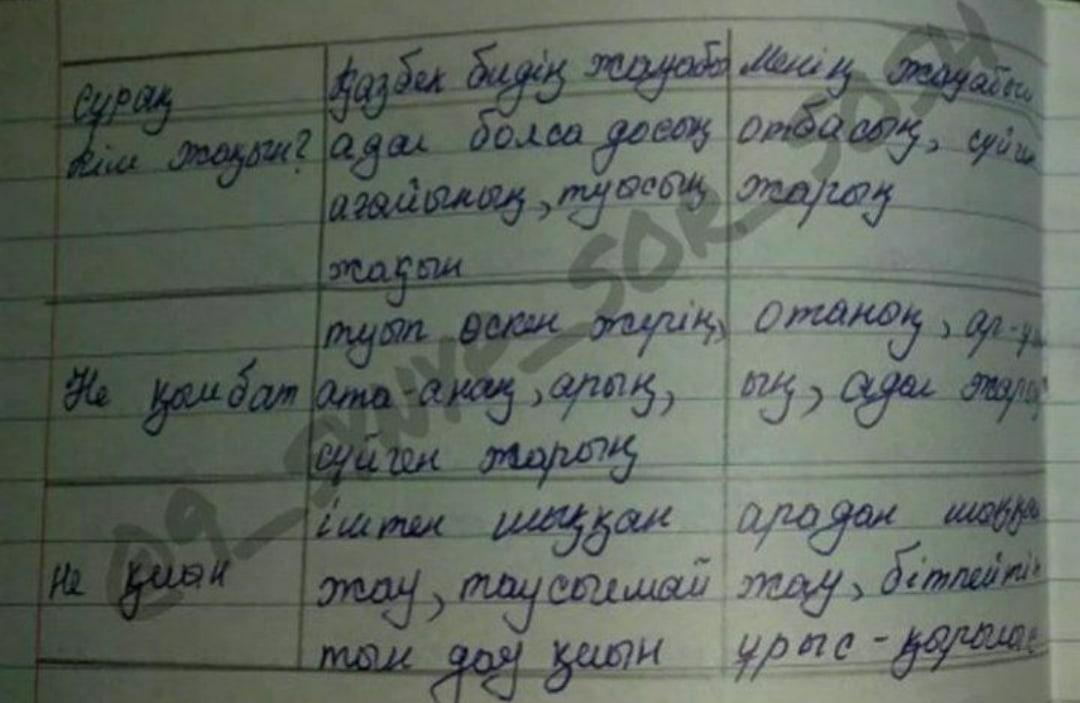 сұрақ Қазбек бидің жауабы Менің жауабым
Кім жақын? адал болса досың отбасың, сүйген
ағайының, туысың жарың
жақын
туып өскен жерің, отаның, ар-ұя
Не қымбат ата-анаң, арың, ың, адал жарың
сүйген жарың
іштен шыққан арадан шыққан
не қиын жау, таусылмай жау, бітпейтін
тын дау қиын ұрыс-қырылыс
@9_SYNYP_SOR_SOCH